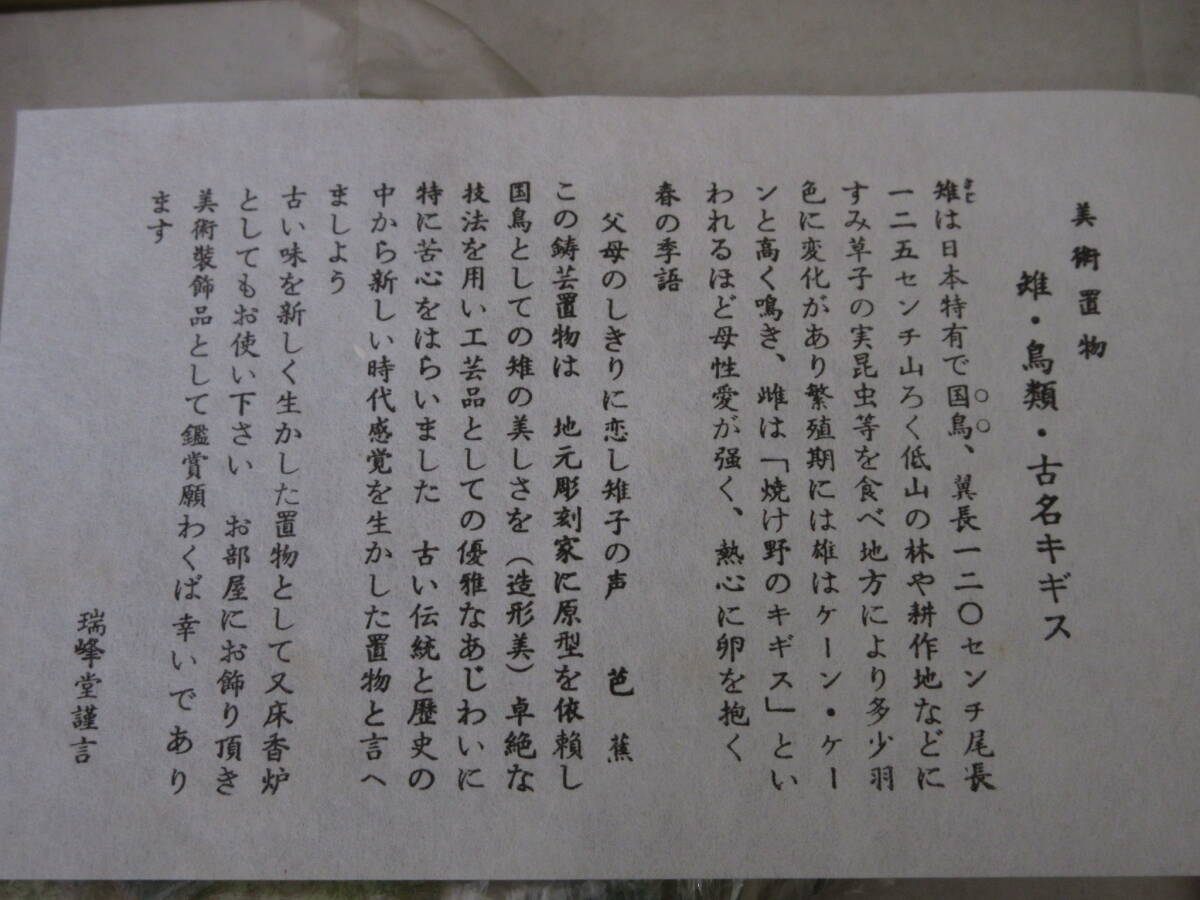 美術置物
雉・鳥類・古名キギス
雉は日本特有で国鳥、翼長一二〇センチ尾長
一二五センチ山ろく低山の林や耕作地などに
すみ草子の実昆虫等を食べ地方により多少羽
色に変化があり繁殖期には雄はケーン・ケー
ンと高く鳴き、雌は「焼け野のキギス」とい
われるほど母性愛が强く、熱心に卵を抱く
春の季語
父母のしきりに恋し雉子の声 芭蕉
この鋳芸置物は 地元彫刻家に原型を依頼し
国鳥としての雉の美しさを(造形美)卓絶な
技法を用い工芸品としての優雅なあじわいに
特に苦心をはらいました 古い伝統と歴史の
中から新しい時代感覚を生かした置物と言へ
ましよう
古い味を新しく生かした置物として又床香炉
としてもお使い下さい お部屋にお飾り頂き
美術装飾品として鑑賞願わくば幸いであり
ます
瑞峰堂謹言